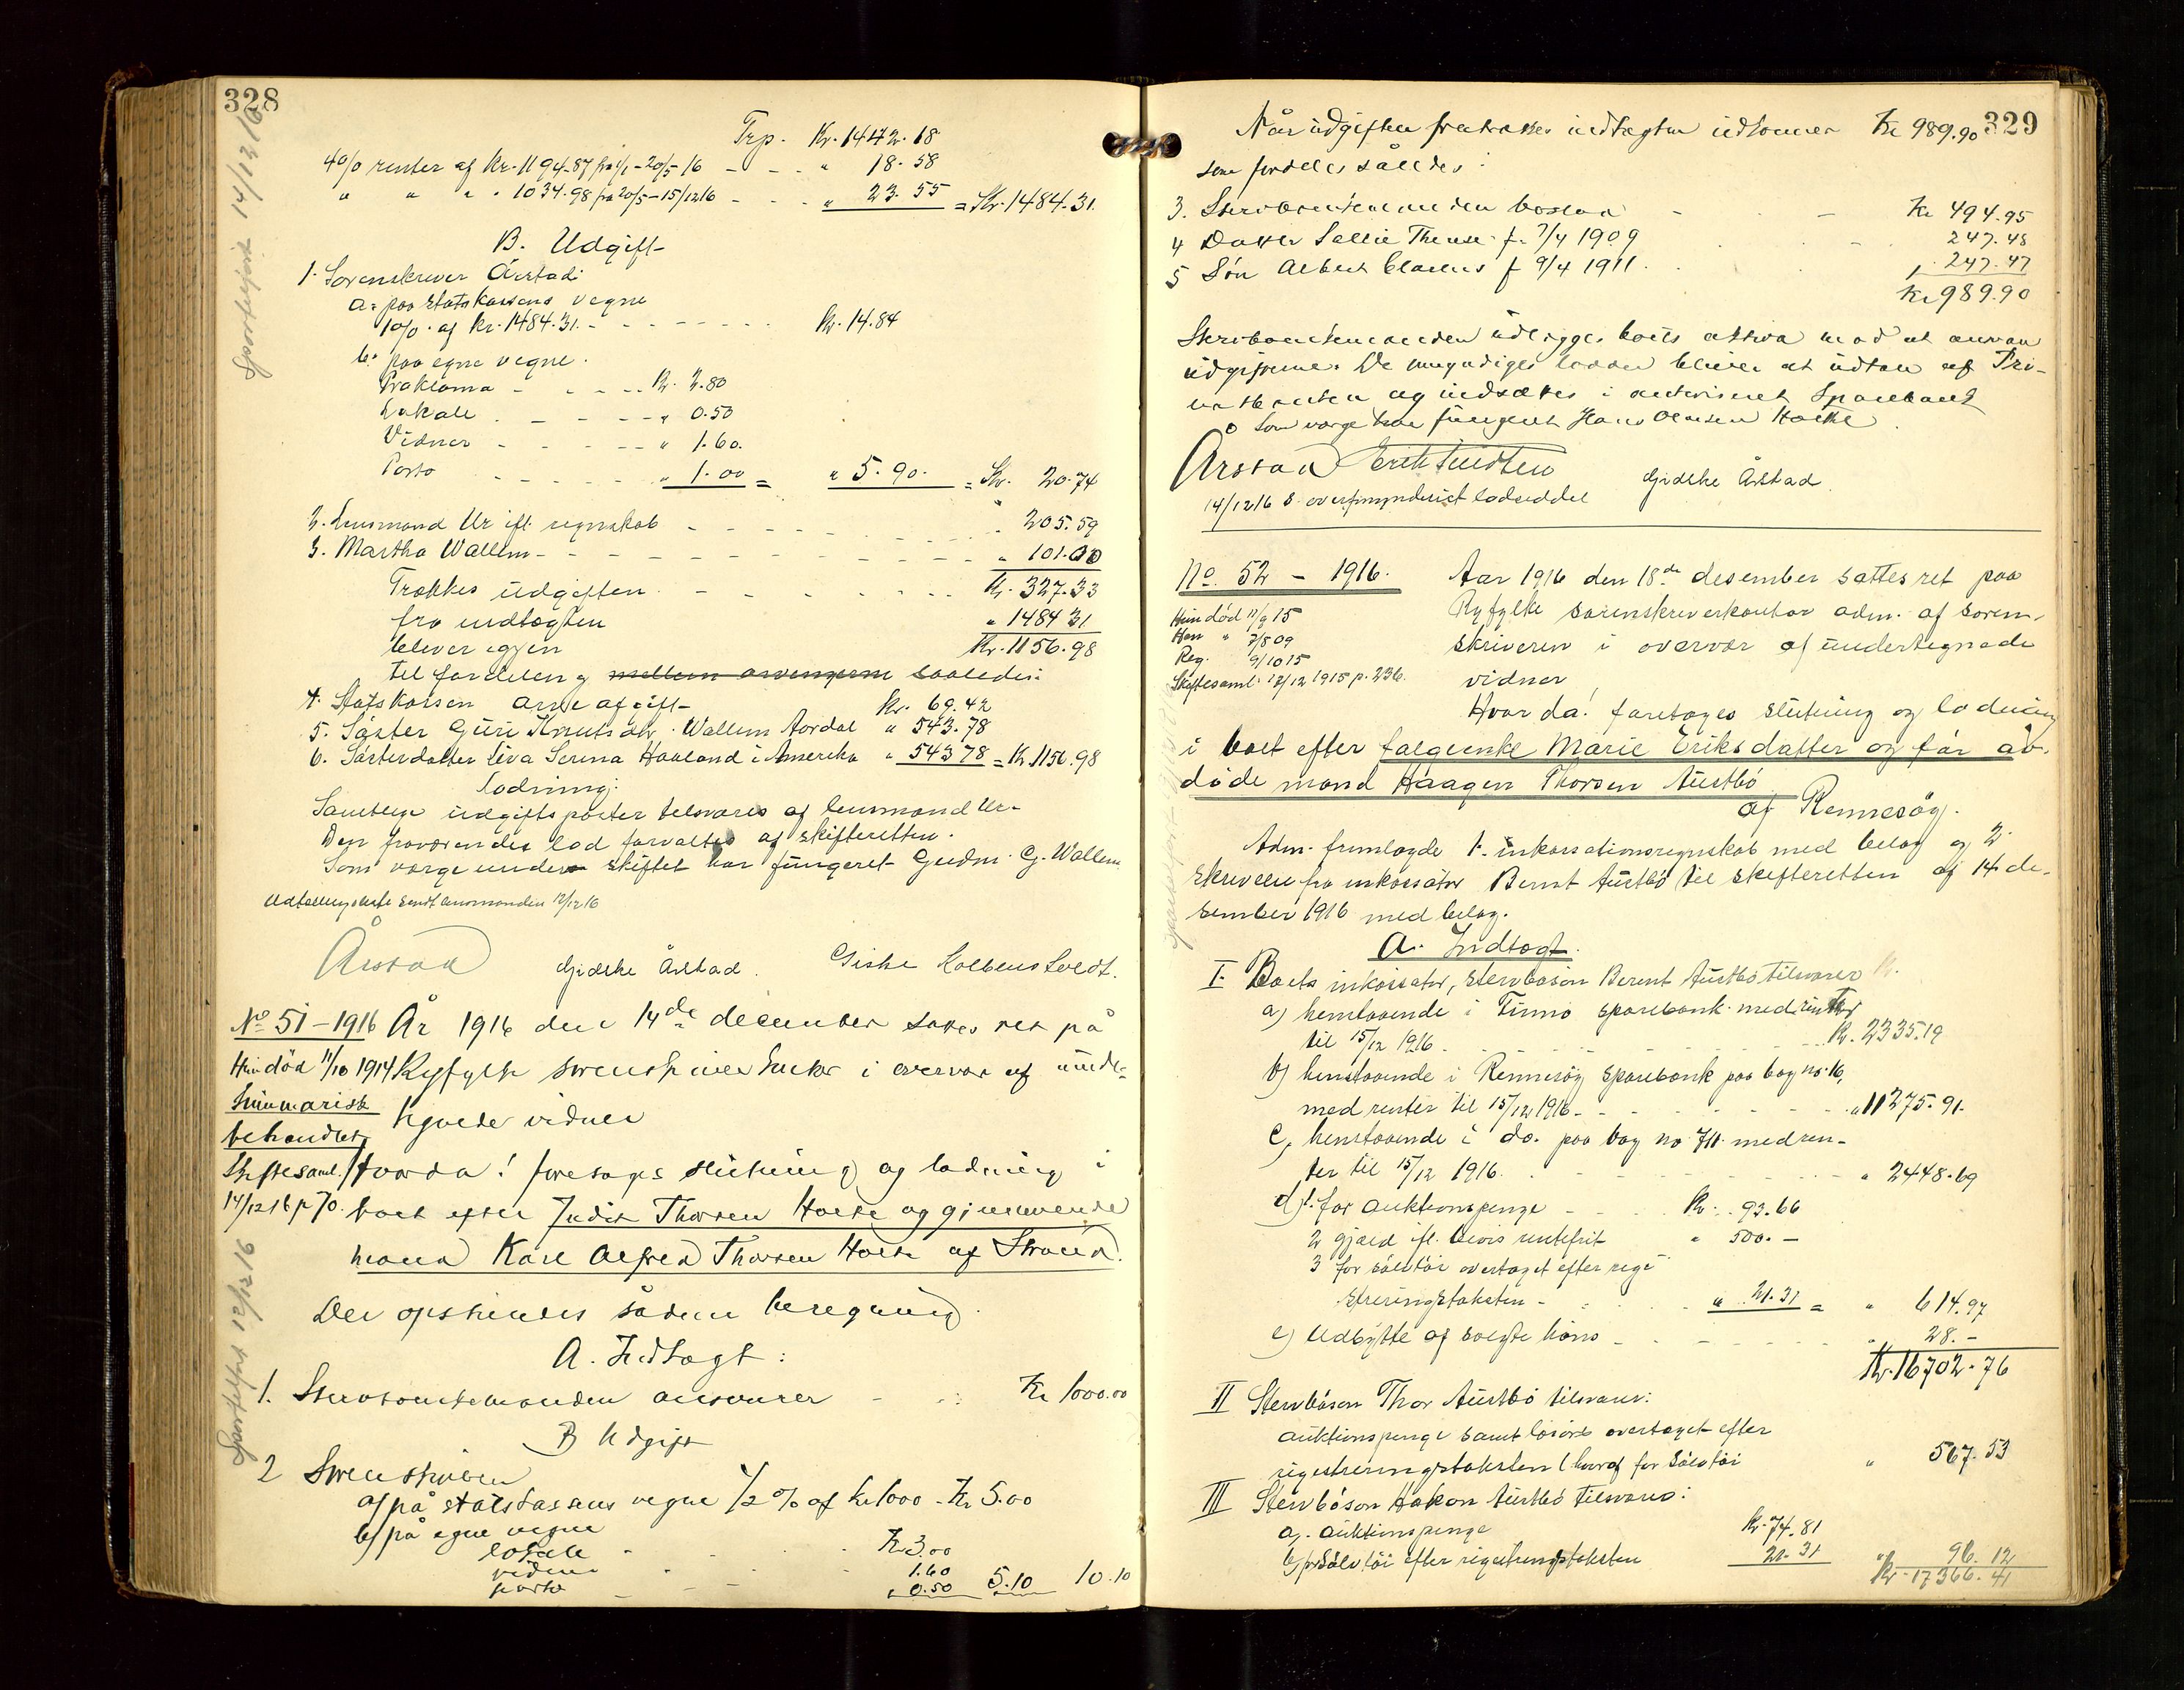 328
Trp. Kr. 1442.18
4% renter af Kr. 1194.87 fra 1/1-20/5-16 - - - " 18.58
" " " " 1034.98 fra 20/5-15/12 16 - - - " 23.55 = Kr. 1484.31.
B. Udgift
1. Sorenskriver Årstad:
a. paa statskassens vegne
1% af Kr. 1484.31. - - - - - - Kr. 14.84
b. paa egne vegne.
Proklama - - - - Kr. 2.80
Lokale - - - - " 0.50
Vidner - - - - " 1.60.
Porto - - - - " 1.00 = " 5.90. = Kr. 20.74
2. Lensmand Ur ifl. regnskab - - - - " 205.59
3. Martha Wallem - - - - - - " 101.00
Trækkes udgiften - - - - - Kr. 327.33
fra indtægten " 1484 31
blever igjen Kr. 1156.98
til fordeling mellem arvingerne saaledes:
4. Statskassen arveafgift Kr. 69.42
5. Søster Guri Knutsdtr. Wallem Aardal " 543.78
6. Søsterdatter Siva Serina Haaland i Amerika " 543 78 = Kr. 1156.98
Lodning:
Samtlige udgiftsposter tilsvares af lensmand Ur.
Den fraværendes lod forvaltes af skifteretten.
Som værge under skiftet har fungeret Gudm. G. Wallem
Udtællingsliste sendt lensmanden 12/12 16
Årstad Gjidske Årstad. Giske Kolbenstvedt.
Sportelført 14/12 16
No 51-1916 År 1916 den 14de december sattes ret på
Hun död 11/10 1914 Ryfylke sorenskriverkontor i overvær af unde-
Summarisk tegnede vidner
behandlet
Skiftesaml. Hvorda! foretages slutning og lodning i
14/12 16 p 70. boet efter Judit Thorsen Holte og gjenlevende
mand Karl Alfred Thorsen Holte af Strand.
Der opstilledes sådan beregning.
A. Indtægt:
1. Stervboenkemanden ansvarer - - : Kr 1000.00
B Udgift
2 Sorenskriveren
a/ på statskassens vegne 1/2 % af kr 1000 - Kr 5.00
b/ på egne vegne
lokale - - - Kr 3.00
vidner 1.60
porto - - - " 0.50 5.10 10.10
Sportelført 12/12 16
329
Når udgiften fratrækkes indtægten udkommer Kr 989.90
som fordeles således:
3. Stervboenkemanden boslod - - Kr 494.95
4 Datter Sallie Therese f. 7/4 1909 247.48
5 Søn Albert Clarens f 9/4 1911. 247.47
Kr 989.90
Stervboenkemanden udlægges boets aktiva mod at ansvare
udgifterne. De umyndiges lodder bliver at udtage af Pri-
og indsættes i autoriseret Sparebank
Som værge har fungeret Hans Olausen Holte
Årstad Erik Knudsen Gjidske Årstad.
14/12 16 S. overformynderiet lodseddel
No. 52 - 1916. Aar 1916 den 18de desember sattes ret paa
Hun död 11/9 15 Ryfylke sorenskriverkontor adm. af soren-
Han " 7/8 09 skriveren i overvær af undertegnede
Reg. 9/10 15 vidner
Skiftesaml. 18/12 1915 p. 236.
Hvor da! foretages slutning og lodning
i boet efter følgeenke Marie Eriksdatter og før av-
døde mand Haagen Thorsen Austbö
af Rennesöy.
Adm. fremlagde 1. inkassationsregnskab med belag og 2
skrivelse fra inkassator Bernt Austbö til skifteretten af 14 de-
sember 1916 med belag.
A. Indtægt.
I. Boets inkassator, stervbosön Berent Austbö tilsvarer
a) henstaaende i Finnö sparebank med renter
til 15/12 1916. - - - - Kr. 2335.19
b) henstaaende i Rennesöy sparebank paa bog no. 16,
med renter til 15/12 1916 - - - - " 11275.91.
c, henstaaende i do. paa bog no 711 med ren-
ter til 15/12 1916. - - - - " 2448.69
d) 1. for auktionspenge - - Kr. 93.66
2 gjæld ifl. bevis rentefrit " 500. -
3 for sölvtöi overtaget efter regi-
streringstaksten - - " 21.31 = " 614.97
e) Udbytte af solgte höns - - - - " 28. -
Kr. 16702.76
II Stervbösön Thor Austbö tilsvarer:
auktionspenge samt lösöre overtaget efter
registreringstaksten (heraf for sölvtöi " 567.53
III Stervbösön Håkon Austbö tilsvarer:
a, auktionspenge Kr. 74.81
b, for sölvtöi efter registreringstaksten 21.31 " 96.12
Kr. 17366.41